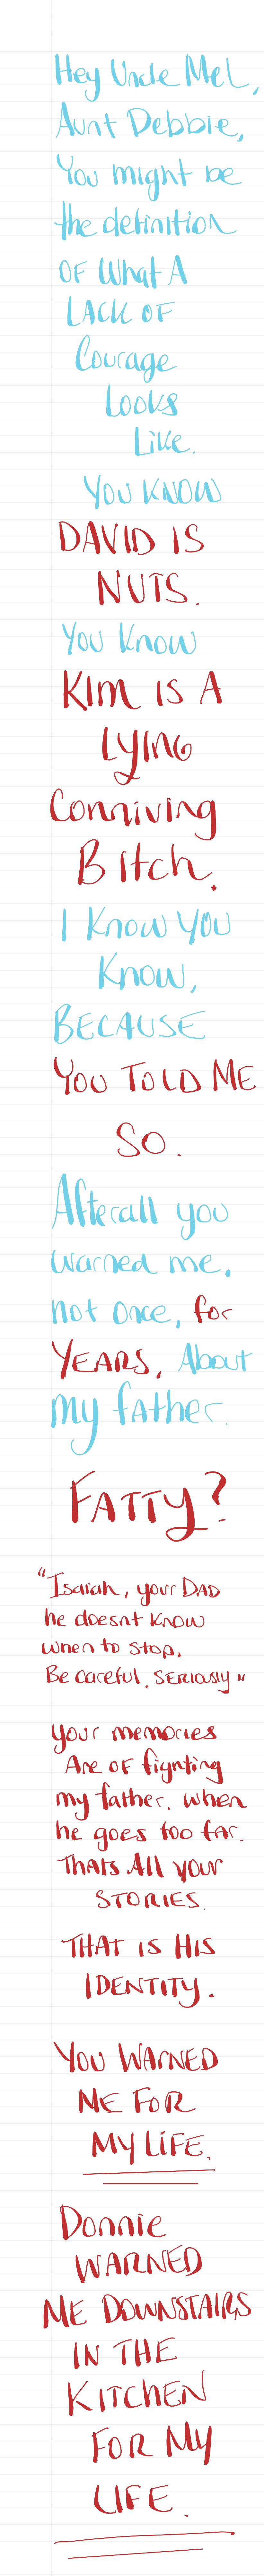 Hey Uncle Mel,
Aunt Debbie,
You might be
the definition
OF What A
LACK OF
Courage
Looks
Like.
YOU KNOW
DAVID IS
NUTS.
You Know
KIM IS A
LYING
Conniving
BItch.
I Know YOU
Know,
BECAUSE
YOU TOLD ME
SO.
Afterall you
warned me,
not once, for
YEARS, About
my father.
FATTY?
"Isaiah, your DAD
he doesnt Know
when to stop.
Be careful, SERIOUSLY"
your memories
Are OF fignting
my father. when
he goes too far.
Thats All your
STORIES.
THAT IS HIS
IDENTITY.
YOU WARNED
ME FOR
MY LIFE.
Donnie
WARNED
ME DOWNSTAIRS
IN THE
KITCHEN
FOR MY
LIFE.